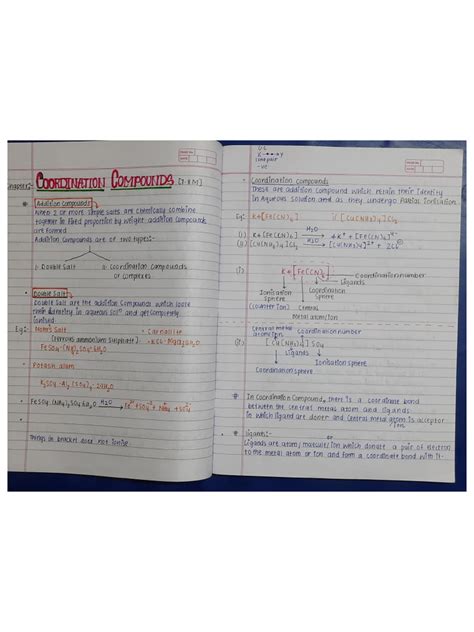 Chapter:- COORDINATION COMPOUNDS [7-8M]
Addition Compounds
When 2 or more simple salts are chemically combine
together in fixed proportion by weight addition compounds
are formed
Addition compounds are of two types:-
1. Double Salt 2. Coordination compounds
or complexes
Double Salt
Double Salt are the addition compounds which loose
their identity in aqueous soln and get completely
ionised.
Eg:- Mohr's Salt
• Carnalite
(Ferrous ammonium Sulphate)
KCl·MgCl2 6H2O
FeSO4·(NH4)2SO4·6H2O
• Potash alum
K2SO4·Al2(SO4)3·24H2O
Things in bracket does not ionise.
• Coordination compounds
These are addition compound which retain their identity
in aqueous solution and as they undergo Partial Ionisation.
Eg:- K4[Fe(CN)6] & [Cu(NH3)4]Cl2
(i) K4[Fe(CN)6] H2O → 4K+ + [Fe(CN)6]4-
(ii) [Cu(NH3)4]Cl2 H2O → [Cu(NH3)4]2+ + 2Cl
(i) K4[Fe(CN)6]
Coordination number
Ligands
Ionisation
sphere
(counter ion)
Coordination
sphere
Central
metal atom/ion
Central metal
atom/ion
coordination number
(ii) [Cu(NH3)4]SO4
Ligands
Ionisation sphere
Coordination sphere
# In Coordination Compound, there is a coordinate bond
between the central metal atom and ligands
in which ligand are doner and central metal atom is acceptor
# Ligands:-
Ligands are atom/molecule/ion which donate a pair of electron
to the metal atom or ion and form a coordinate bond with